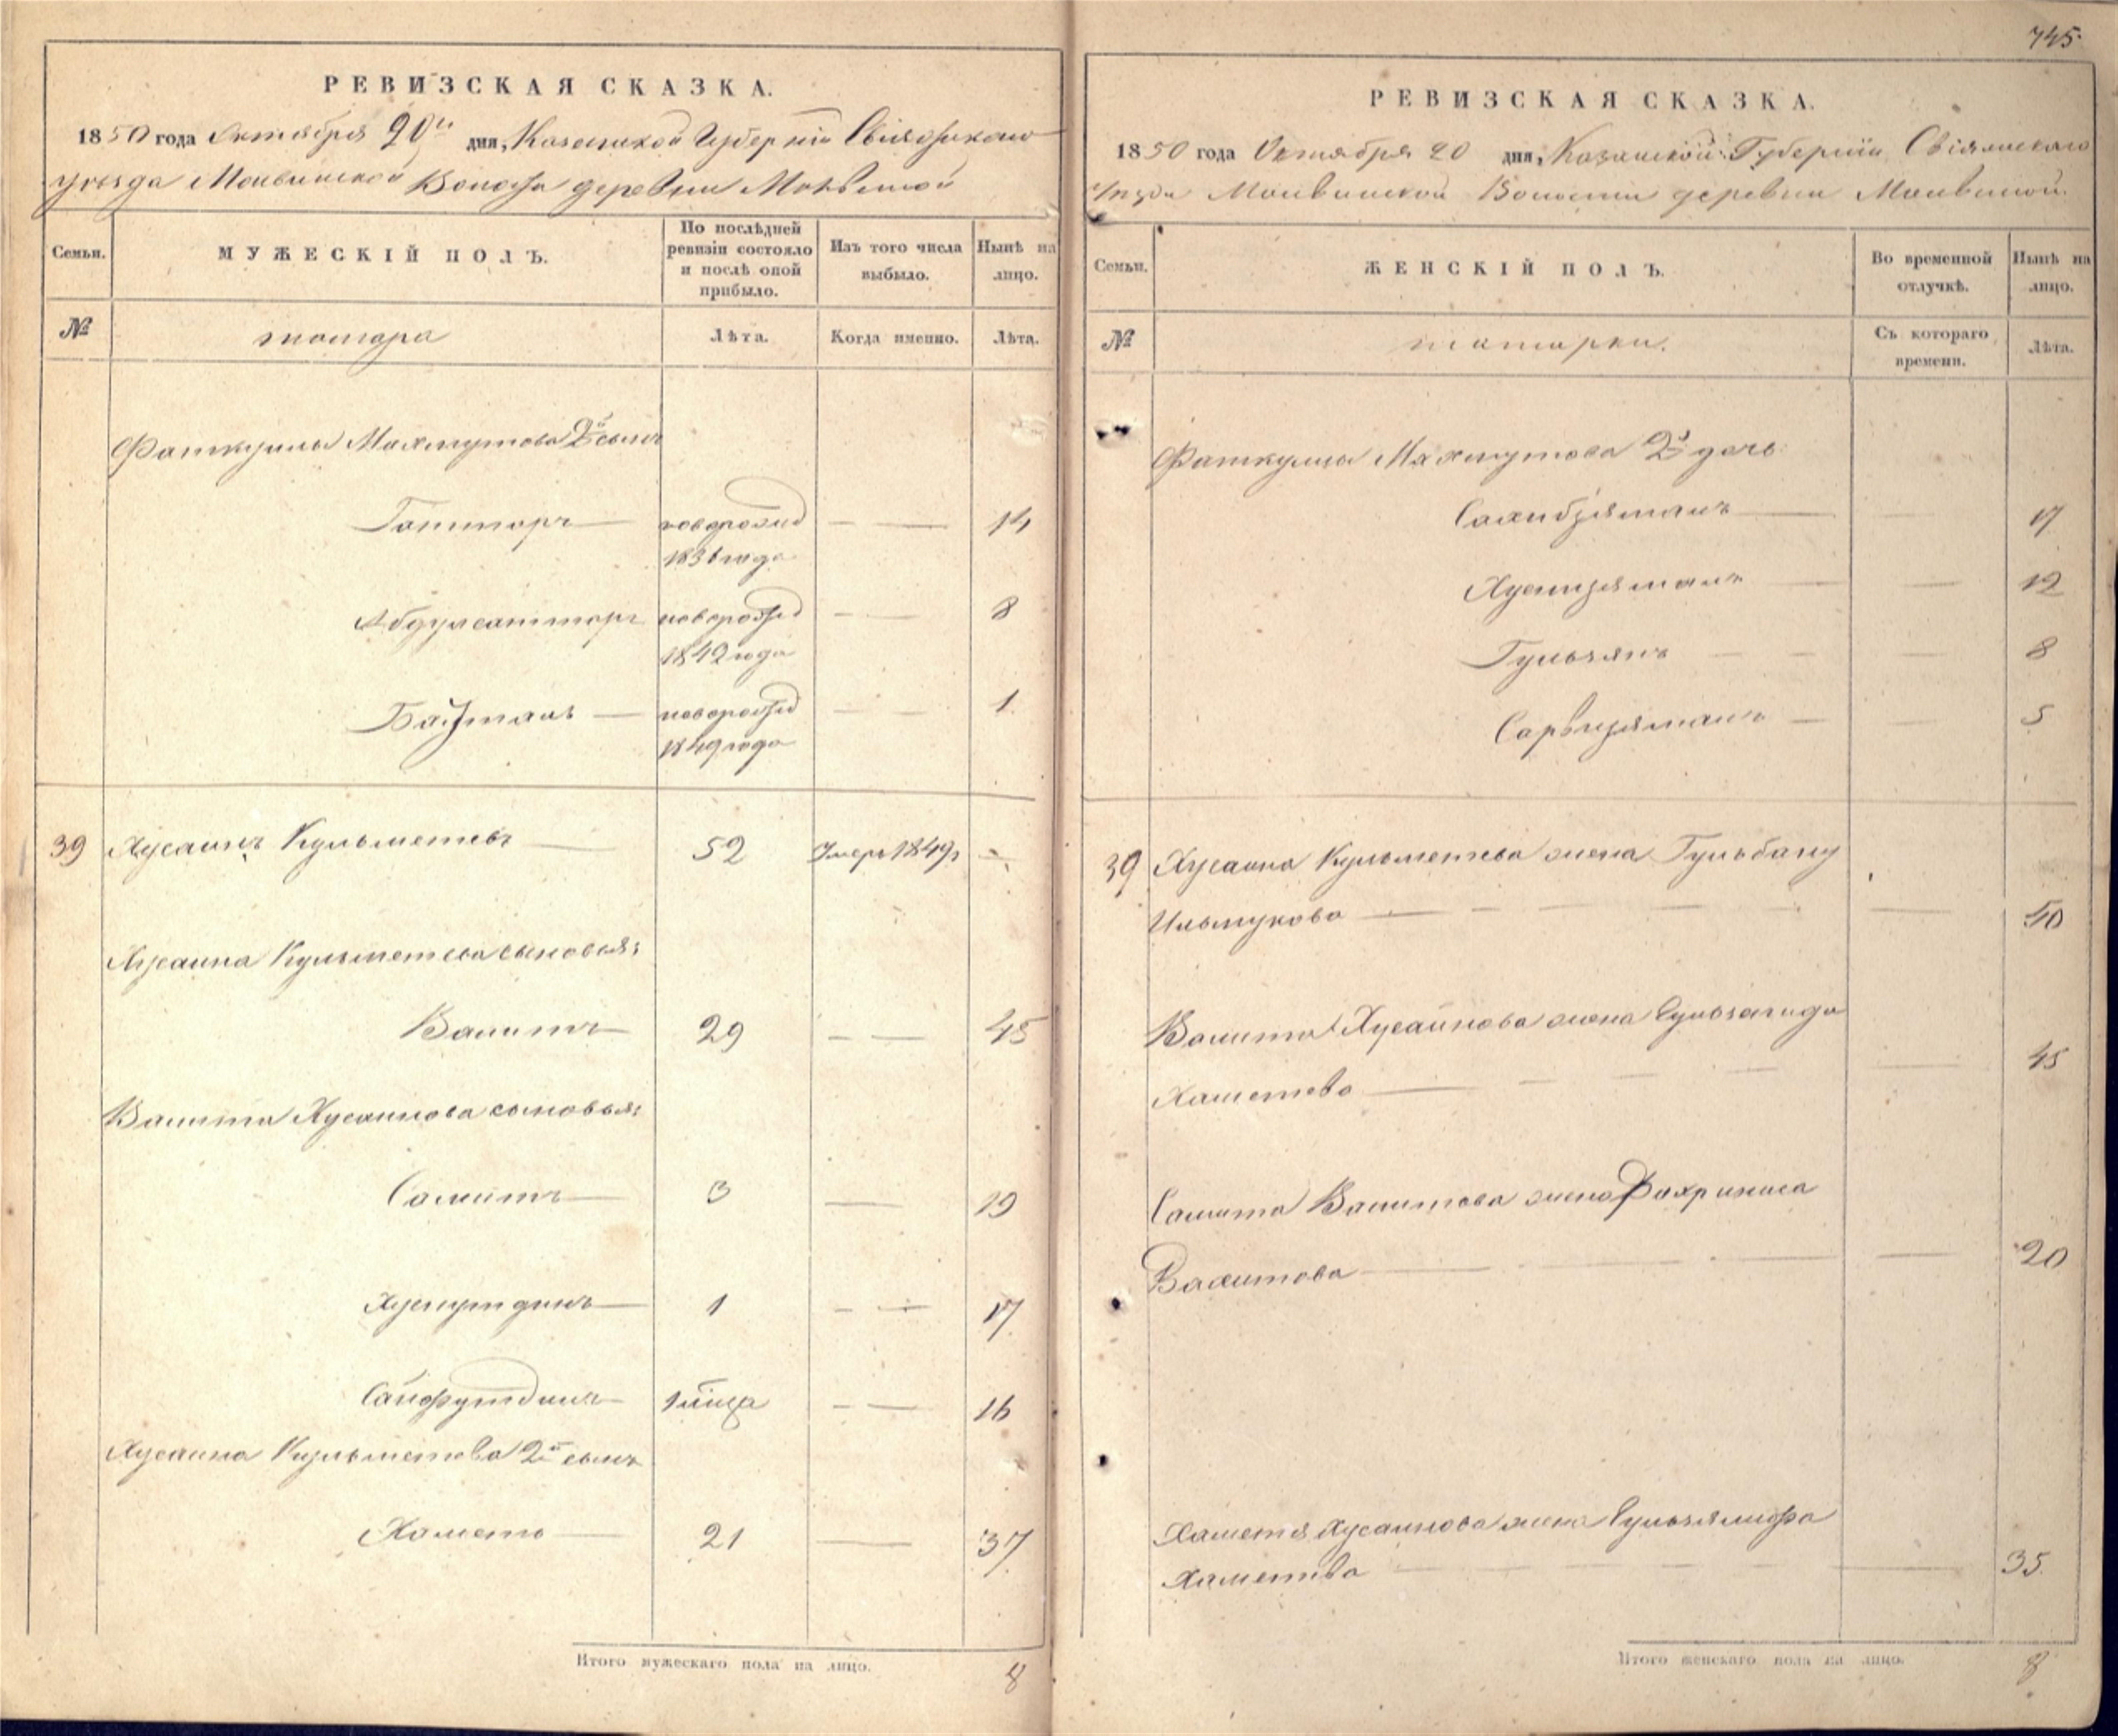 745.
РЕВИЗСКАЯ СКАЗКА.
1850 года Октября 20го дня, Казанской Губерніи Свіяжскаго
уезда Молвинской Волости деревни Молвиной
Семьи. МУЖЕСКІЙ ПОЛЪ. По послѣдней ревизіи состояло и послѣ оной прибыло. Изъ того числа выбыло. Нынѣ на лицо.
№ татара Лѣта. Когда именно. Лѣта.
Фаткуллы Махмутова 2й сынъ
Гаттаръ — новорожд 1836 года — — 14
Абдулсаттаръ новорожд 1842 года — — 8
— новорожд 1849 года — — 1
39 Хусаинъ Кульметевъ — 52 Умеръ 1849 —
Хусаина Кульметева сыновья:
Валитъ — 29 — — 45
Валита Хусаинова сыновья:
Салитъ — 3 — 19
Хуснутдинъ — 1 — — 17
Сайфутдинъ — — — 16
Хусаина Кульметева 2й сынъ
Хаметъ — 21 — 37
Итого мужескаго пола на лицо. 8
РЕВИЗСКАЯ СКАЗКА.
1850 года Октября 20 дня, Казанской Губерніи Свіяжскаго
Уезда Молвинской Волости деревни Молвиной
Семьи. ЖЕНСКІЙ ПОЛЪ. Во временной отлучкѣ. Нынѣ на лицо.
№ татарки. Съ котораго времени. Лѣта.
Фаткуллы Махмутова 2й дочь:
Сахибзяманъ — — 17
Хуснизяманъ — — 12
Гульзянъ — — — 8
Сарвизяманъ — — 5
39 Хусаина Кульметева жена Гульбану
Ильмукова — — — — — — 50
Валита Хусаинова жена Гульзагида
Хаметева — — — — — 45
Салита Валитова жена Фахриниса
Вахитова — — — — — 20
Хаметя Хусаинова жена
Хаметева — — — — 35.
Итого женскаго пола на лицо. 8